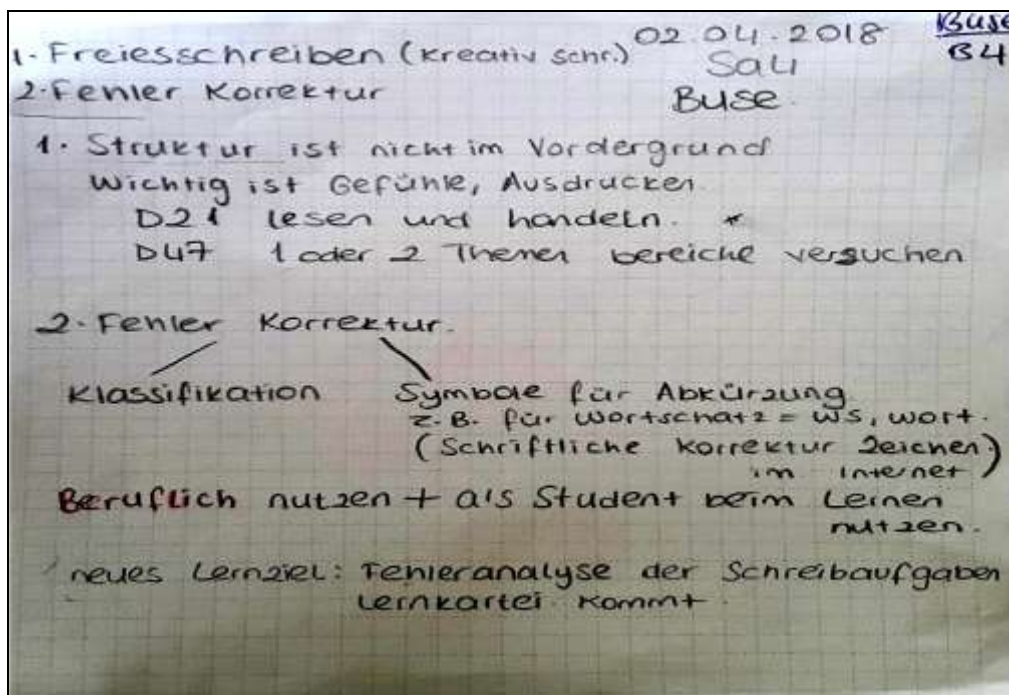 Buse
B4
02.04.2018
Salı
Buse.
1. Freiesschreiben (Kreativ schr.)
2. Fehler Korrektur
1. Struktur ist nicht im Vordergrund
Wichtig ist Gefühle, Ausdrucken.
D21 lesen und handeln. *
D47 1 oder 2 Themen bereiche versuchen
2. Fehler Korrektur.
Klassifikation
Symbole für Abkürzung
z.B. für Wortschatz = WS, Wort.
(Schriftliche Korrektur Zeichen.
im Internet)
Beruflich nutzen + als Student beim Lernen
nutzen.
neues Lernziel: Fehleranalyse der Schreibaufgaben
Lernkartei kommt.